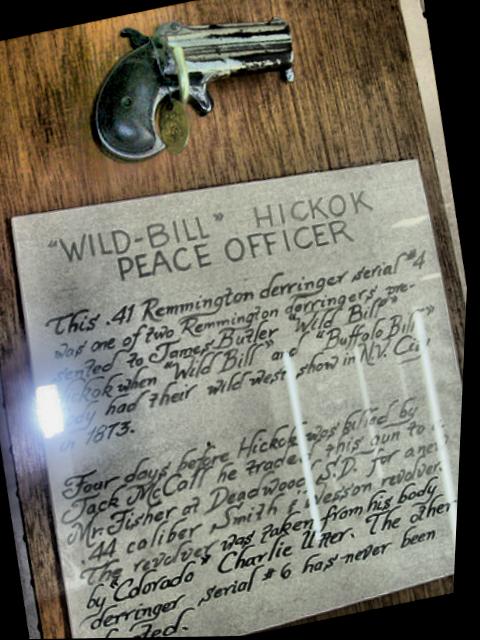 "WILD-BILL" HICKOK
PEACE OFFICER
This .41 Remmington derringer serial #4
was one of two Remmington derringers pre-
sented to James Butler "Wild Bill"
Hickok when "Wild Bill" and "Buffalo Bill"
Cody had their wild west show in N.Y. City
in 1873.
Four days before Hickok was killed by
Jack McCall he traded this gun to
Mr. Fisher at Deadwood S.D. for a new
.44 caliber Smith & Wesson revolver.
The revolver was taken from his body
by "Colorado" Charlie Utter. The other
derringer serial #6 has never been